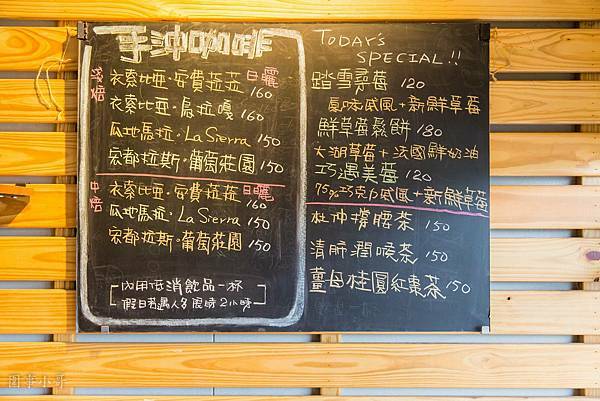 手沖咖啡
淺焙
衣索比亞·安費菈菈 日曬 160
衣索比亞·局拉嘎 160
瓜地馬拉·La Sierra 150
宏都拉斯·葡萄莊園 150
中焙
衣索比亞·安費菈菈 日曬 160
瓜地馬拉·La Sierra 150
宏都拉斯·葡萄莊園 150
內用低消飲品一杯
假日若遇人多 限時2小時
TODAY's
SPECIAL!!
踏雪尋莓 120
原味戚風+新鮮草莓
鮮草莓鬆餅 180
大湖草莓+法國鮮奶油
巧遇美莓 120
75%巧克力戚風+新鮮草莓
杜仲撐腰茶 150
清肺潤喉茶 150
薑母桂圓紅棗茶 150